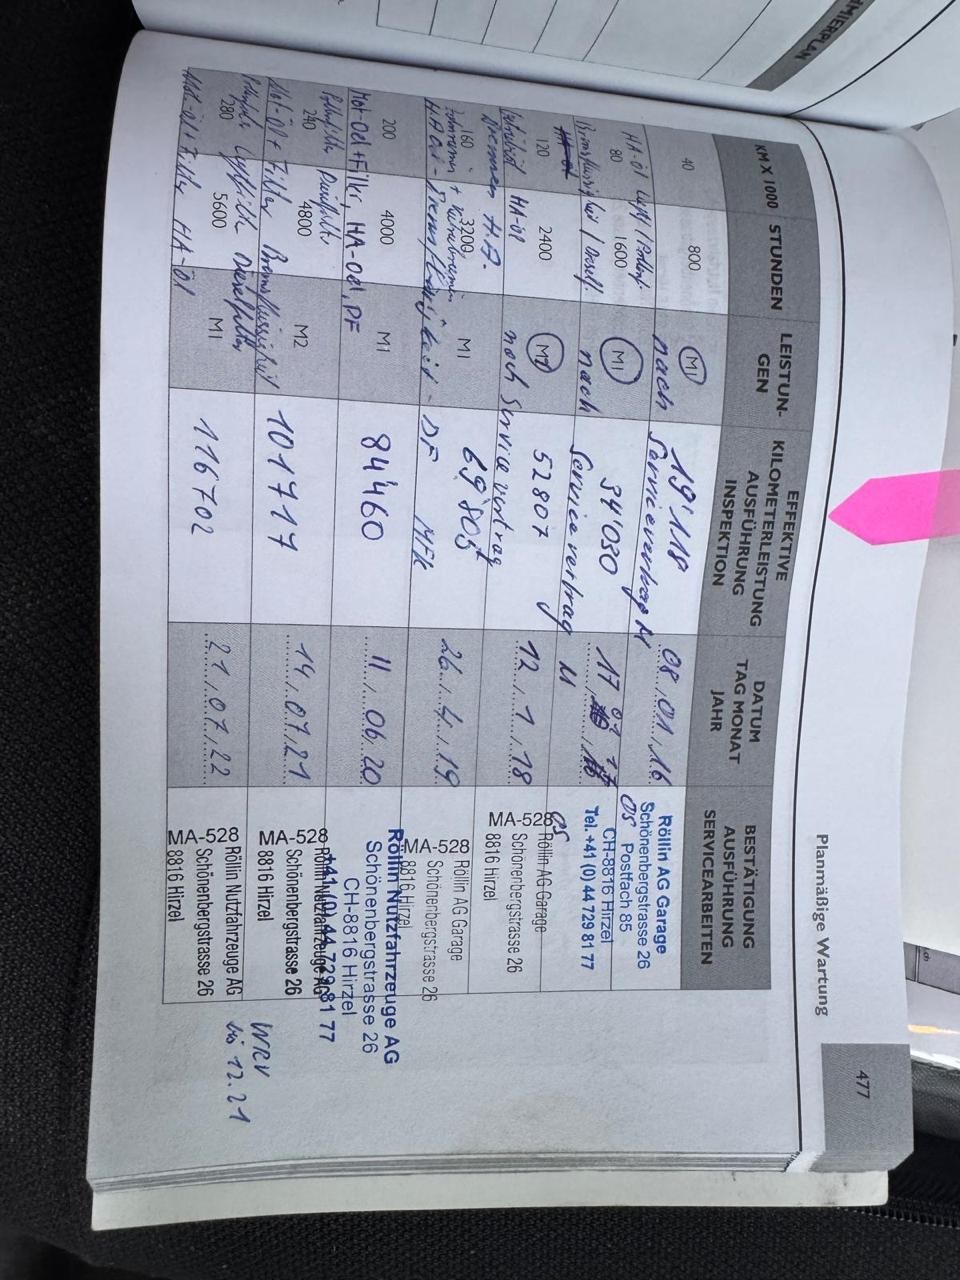 MIERPLAN
Planmäßige Wartung
477
KM X 1000
STUNDEN
LEISTUN-
GEN
EFFEKTIVE
KILOMETERLEISTUNG
AUSFÜHRUNG
INSPEKTION
DATUM
TAG MONAT
JAHR
BESTÄTIGUNG
AUSFÜHRUNG
SERVICEARBEITEN
40
800
M1
19'118
08.01.16
nach
Röllin AG Garage
Schönenbergstrasse 26
Postfach 85
CH-8816 Hirzel
Tel. +41 (0) 44 729 81 77
HA-Öl
80
1600
M1
34'030
17
nach Servicevertrag
05
120
2400
HA-Öl
52807
12.1.18
MA-528
Röllin AG Garage
Schönenbergstrasse 26
8816 Hirzel
Bremsen H.A.
noch Servicevertrag
160
3200
M1
69'805
26.4.19
MA-528
Röllin AG Garage
Schönenbergstrasse 26
8816 Hirzel
DF MFK
200
4000
M1
84'460
11.06.20
Röllin Nutzfahrzeuge AG
Schönenbergstrasse 26
CH-8816 Hirzel
+41 (0) 44 729 81 77
Mot-Oel + Filter HA-Oel, PF
240
4800
M2
101717
14.07.21
MA-528
Röllin Nutzfahrzeuge AG
Schönenbergstrasse 26
8816 Hirzel
Mot-Öl + Filter Bremsflüssigkeit
WRV
bis 12.21
280
5600
M1
116702
21.07.22
MA-528
Röllin Nutzfahrzeuge AG
Schönenbergstrasse 26
8816 Hirzel
Mot.-Öl + Filter HA-Öl